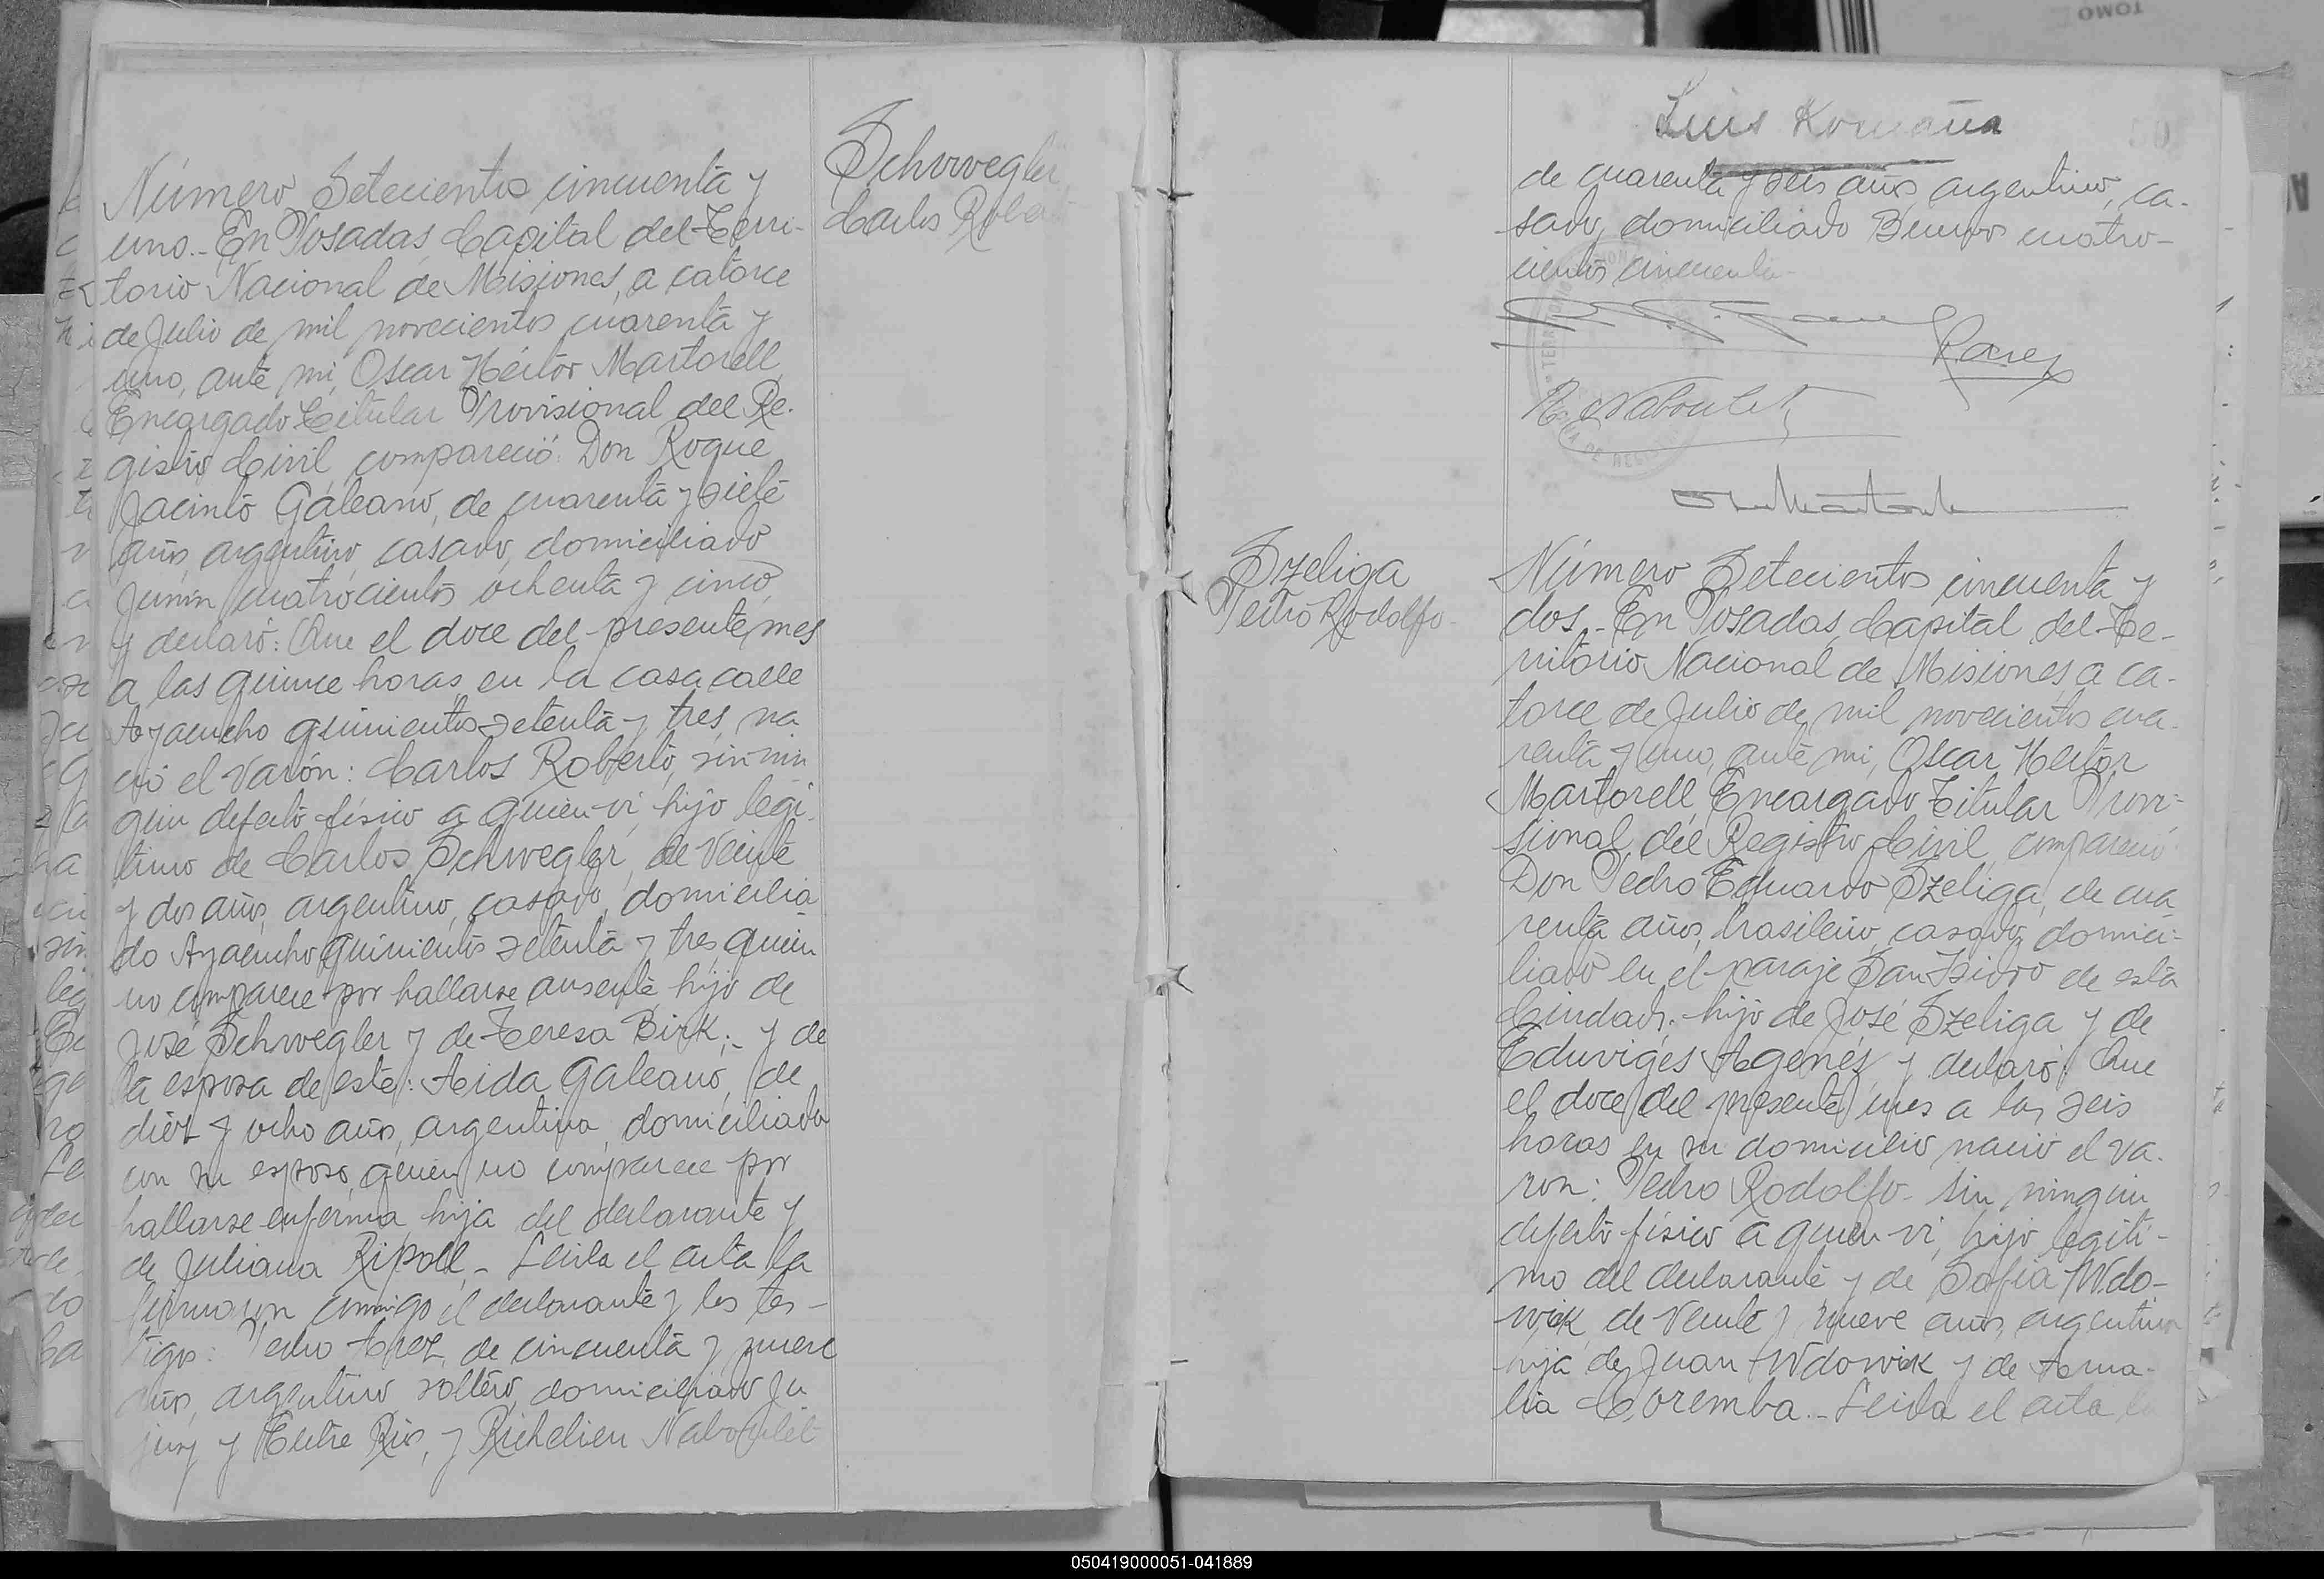 OMOT
Schwegler
Carlos Robe
Número Setecientos cincuenta y
uno.- En Posadas, Capital del Terri-
torio Nacional de Misiones, a catorce
de Julio de mil novecientos cuarenta y
uno, ante mi, Oscar Héctor Martorell,
Encargado Titular Provisional del Re-
gistro Civil, compareció: Don Roque
Jacinto Galeano, de cuarenta y siete
años, argentino, casado, domiciliado
Junin cuatrocientos ochenta y cinco,
y declaró: Que el doce del presente mes
a las quince horas, en la casa calle
Ayacucho quinientos setenta y tres, na
ció el varón: Carlos Roberto, sin nin
gun defecto físico a quien vi, hijo legi-
timo de Carlos Schwegler, de veinte
y dos años, argentino, casado, domicilia-
do Ayacucho quinientos setenta y tres, quien
no comparece por hallarse ausente, hijo de
José Schwegler y de Teresa Birk;- y de
la esposa de este: Aida Galeano, de
diez y ocho años, argentina, domiciliada
con su esposo, quien no comparece por
hallarse enferma, hija del declarante y
de Juliana Ripoll.- Leida el acta la
firmaron conmigo el declarante y los tes-
tigos: Pedro de cincuenta y nueve
años, argentino, soltero, domiciliado Ju
juy y Entre Rios, y Richelieu Naboulet
Luis
50
de cuarenta y seis años, argentino, ca-
sado, domiciliado cuatro-
cientos cincuenta-
R. Naboulet
Szeliga
Pedro Rodolfo-
Número Setecientos cincuenta y
dos.- En Posadas, Capital del Te-
rritorio Nacional de Misiones, a ca-
torce de Julio de mil novecientos cua-
renta y uno, ante mi, Oscar Héctor
Martorell, Encargado Titular Provi-
sional del Registro Civil, compareció:
Don Pedro Eduardo Szeliga, de cua
renta años, brasileño, casado, domici-
liado en el paraje San Isidro de esta
Ciudad,- hijo de José Szeliga y de
Eduviges Agenés, y declaró: Que
el doce del presente mes a las seis
horas en su domicilio nació el va-
ron: Pedro Rodolfo- sin ningun
defecto físico a quien vi, hijo legiti-
mo del declarante y de Sofia Wdo-
wik, de veinte y nueve años, argentina
hija de Juan Wdowik y de Ama-
lia Coremba.- Leida el acta la
050419000051-041889